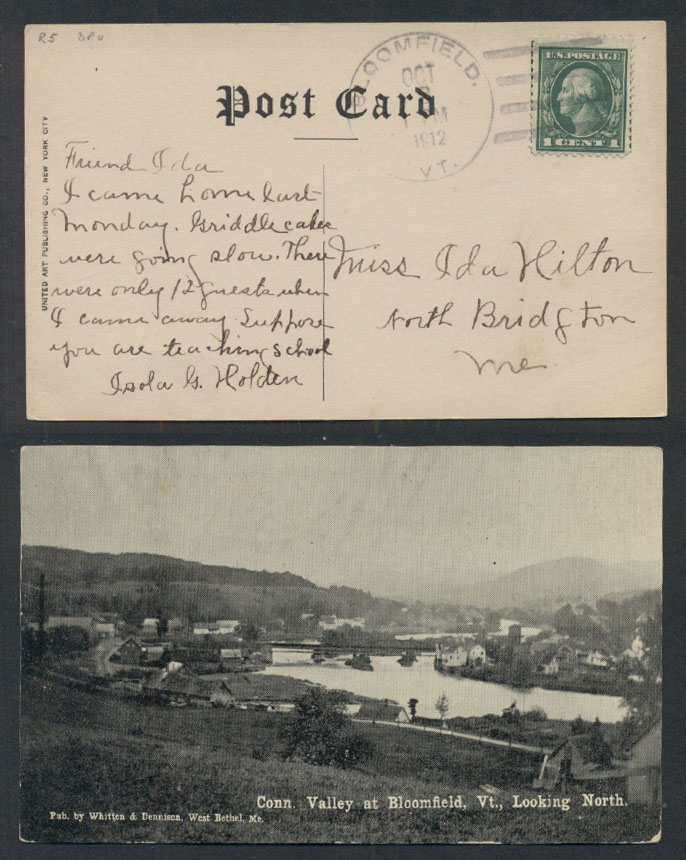 85 DPO
BLOOMFIELD.
OCT
M
1912
VT.
U.S. POSTAGE
1 CENT 1
Post Card
UNITED ART PUBLISHING CO., NEW YORK CITY
Friend Ida
I came home last
Monday. Griddle cakes
were going slow. There
were only 12 guests when
I came away Suppose
you are teaching school
Isola G. Holden
Miss Ida Hilton
North Bridgton
Me.
Conn. Valley at Bloomfield, Vt., Looking North.
Pub. by Whitten & Dennison, West Bethel, Me.